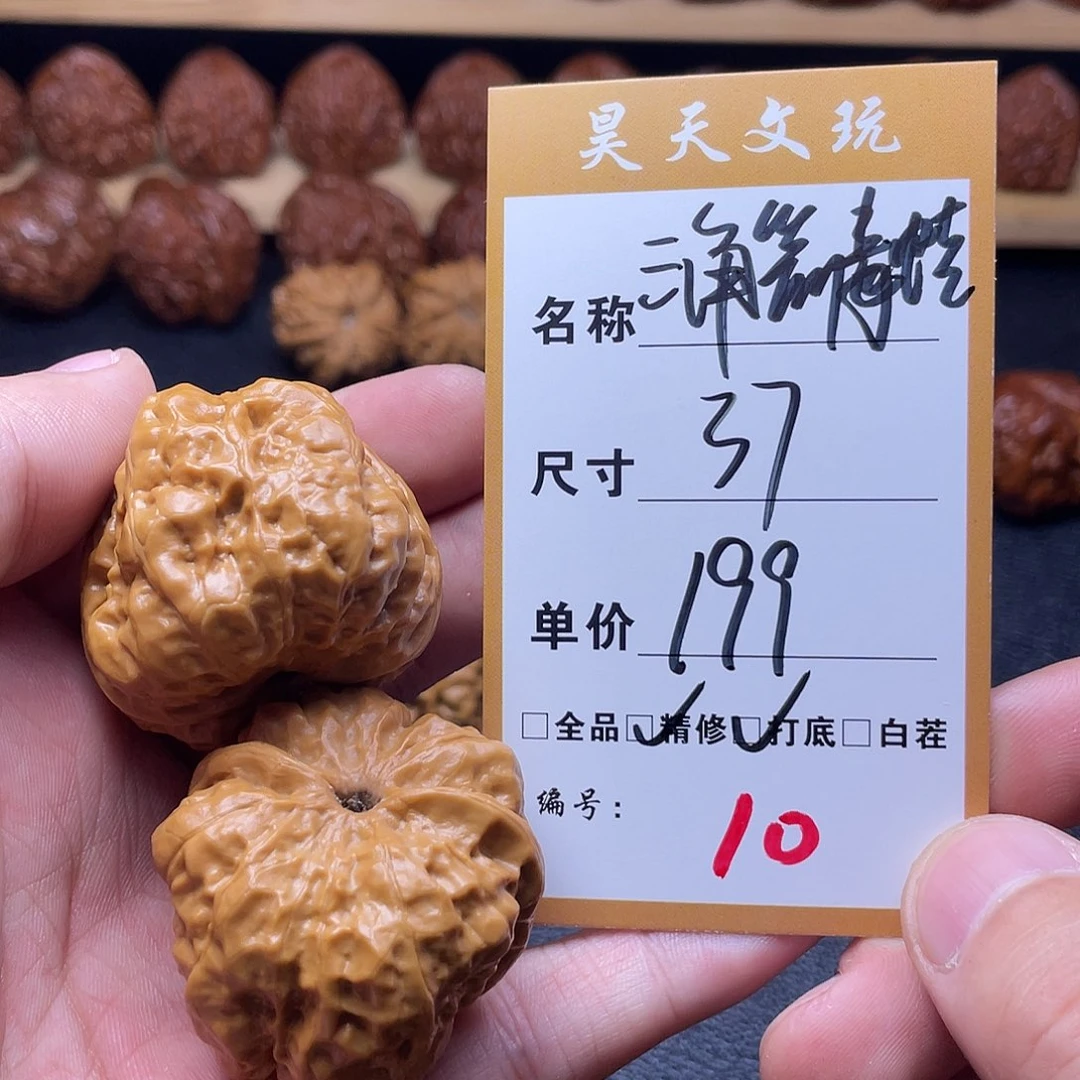 昊天文玩
名称
尺寸 37
单价 199
□全品☑精修☑打底□白茬
编号： 10